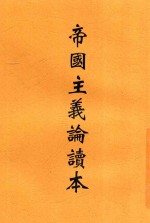 帝國主義論讀本